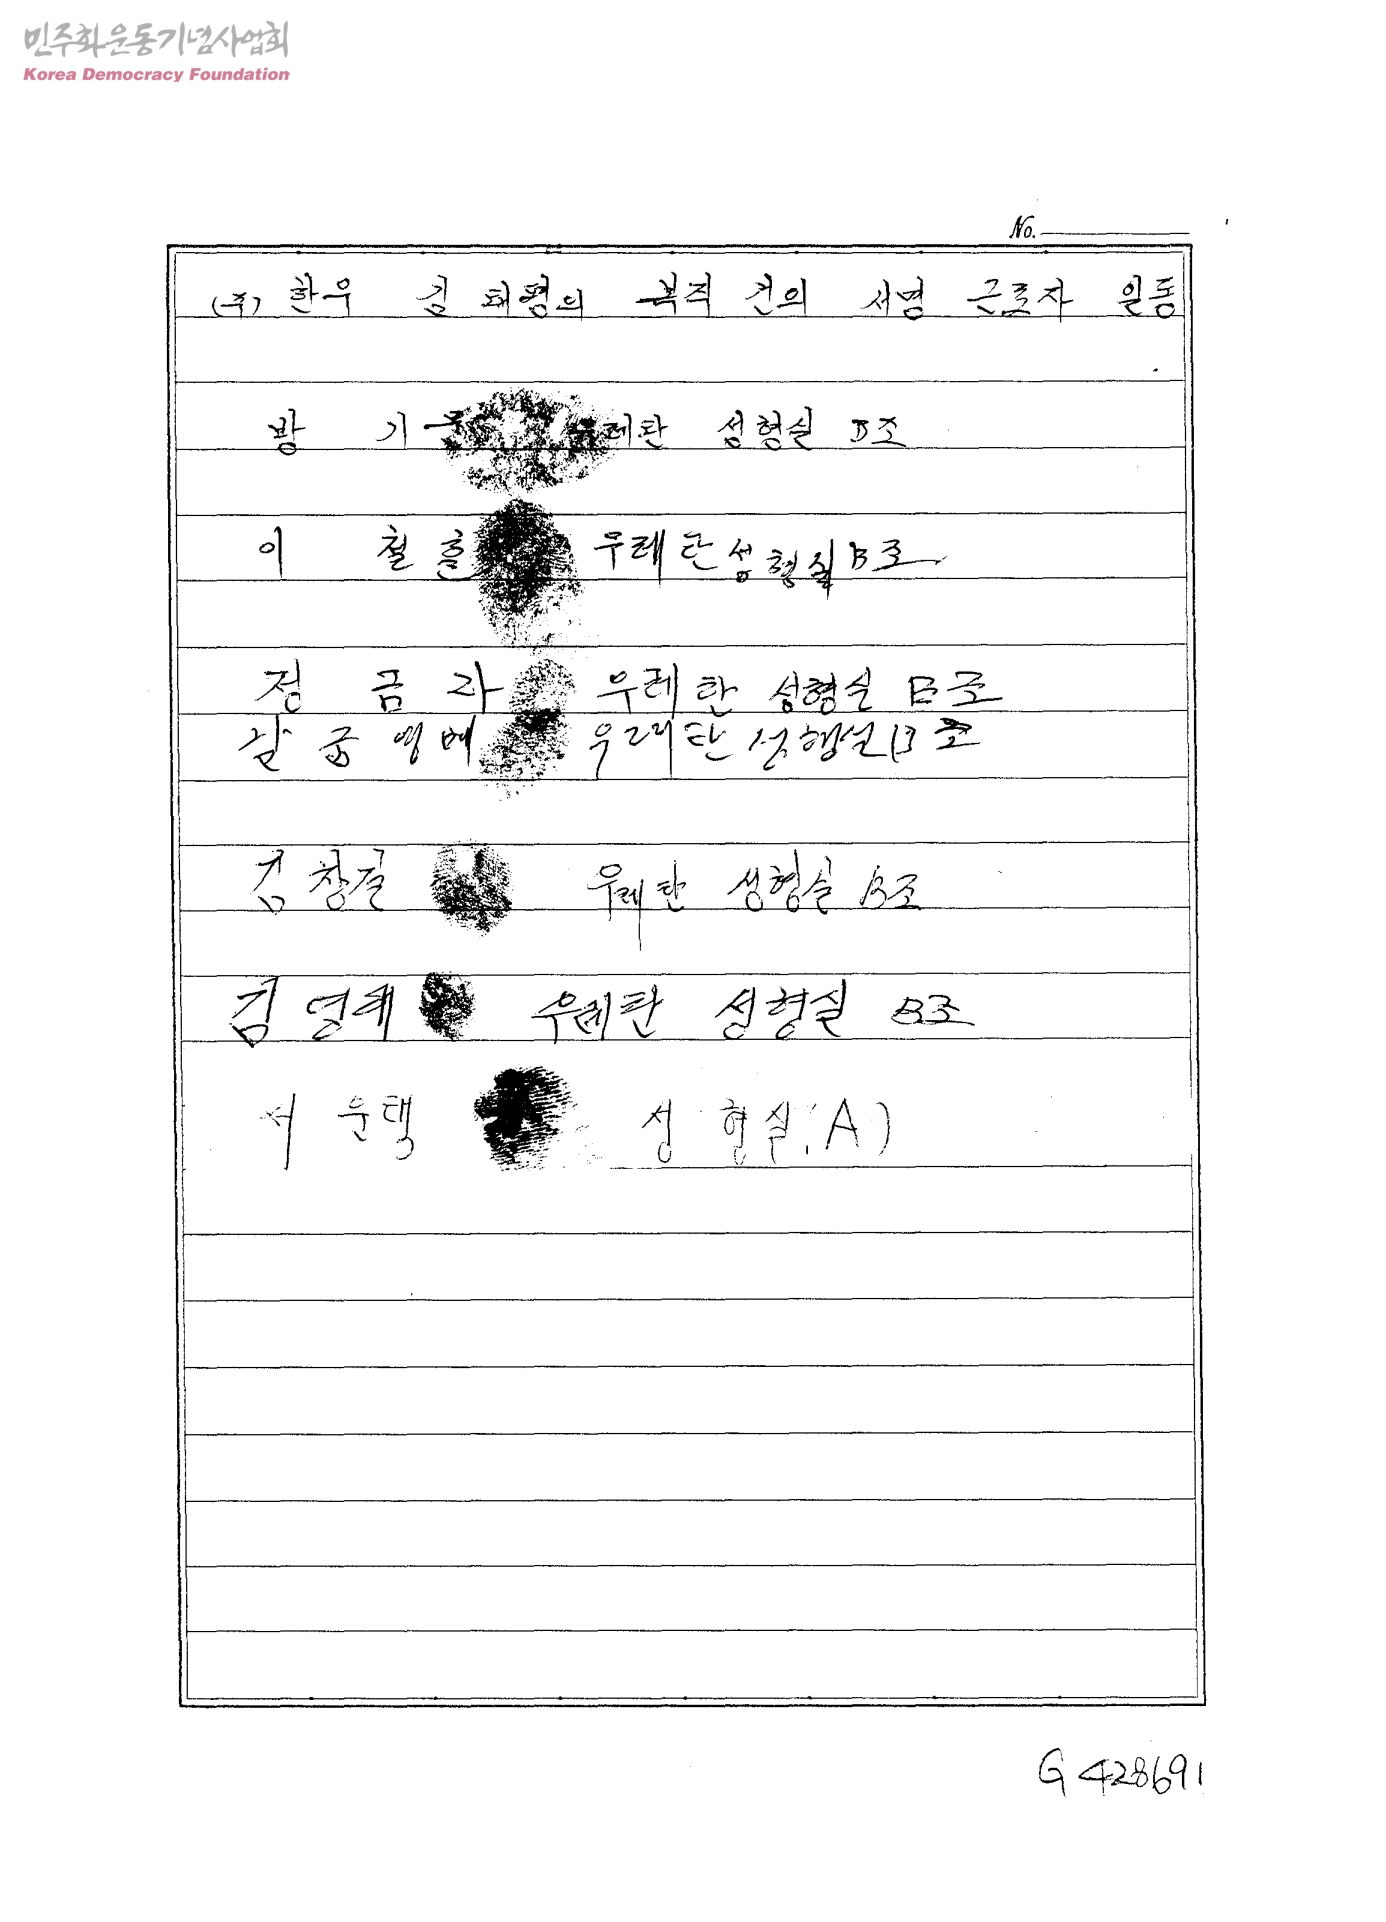 민주화운동기념사업회
Korea Democracy Foundation
No.
(주) 한우 김 태평의 복직 건의 서명 근로자 일동
방 기 우레탄 성형실 B조
이 철훈 우레탄 성형실 B조
정 금자 우레탄 성형실 B조
우레탄 성형실 B조
김창길 우레탄 성형실 B조
김영래 우레탄 성형실 B조
서 운택 성형실(A)
G 428691